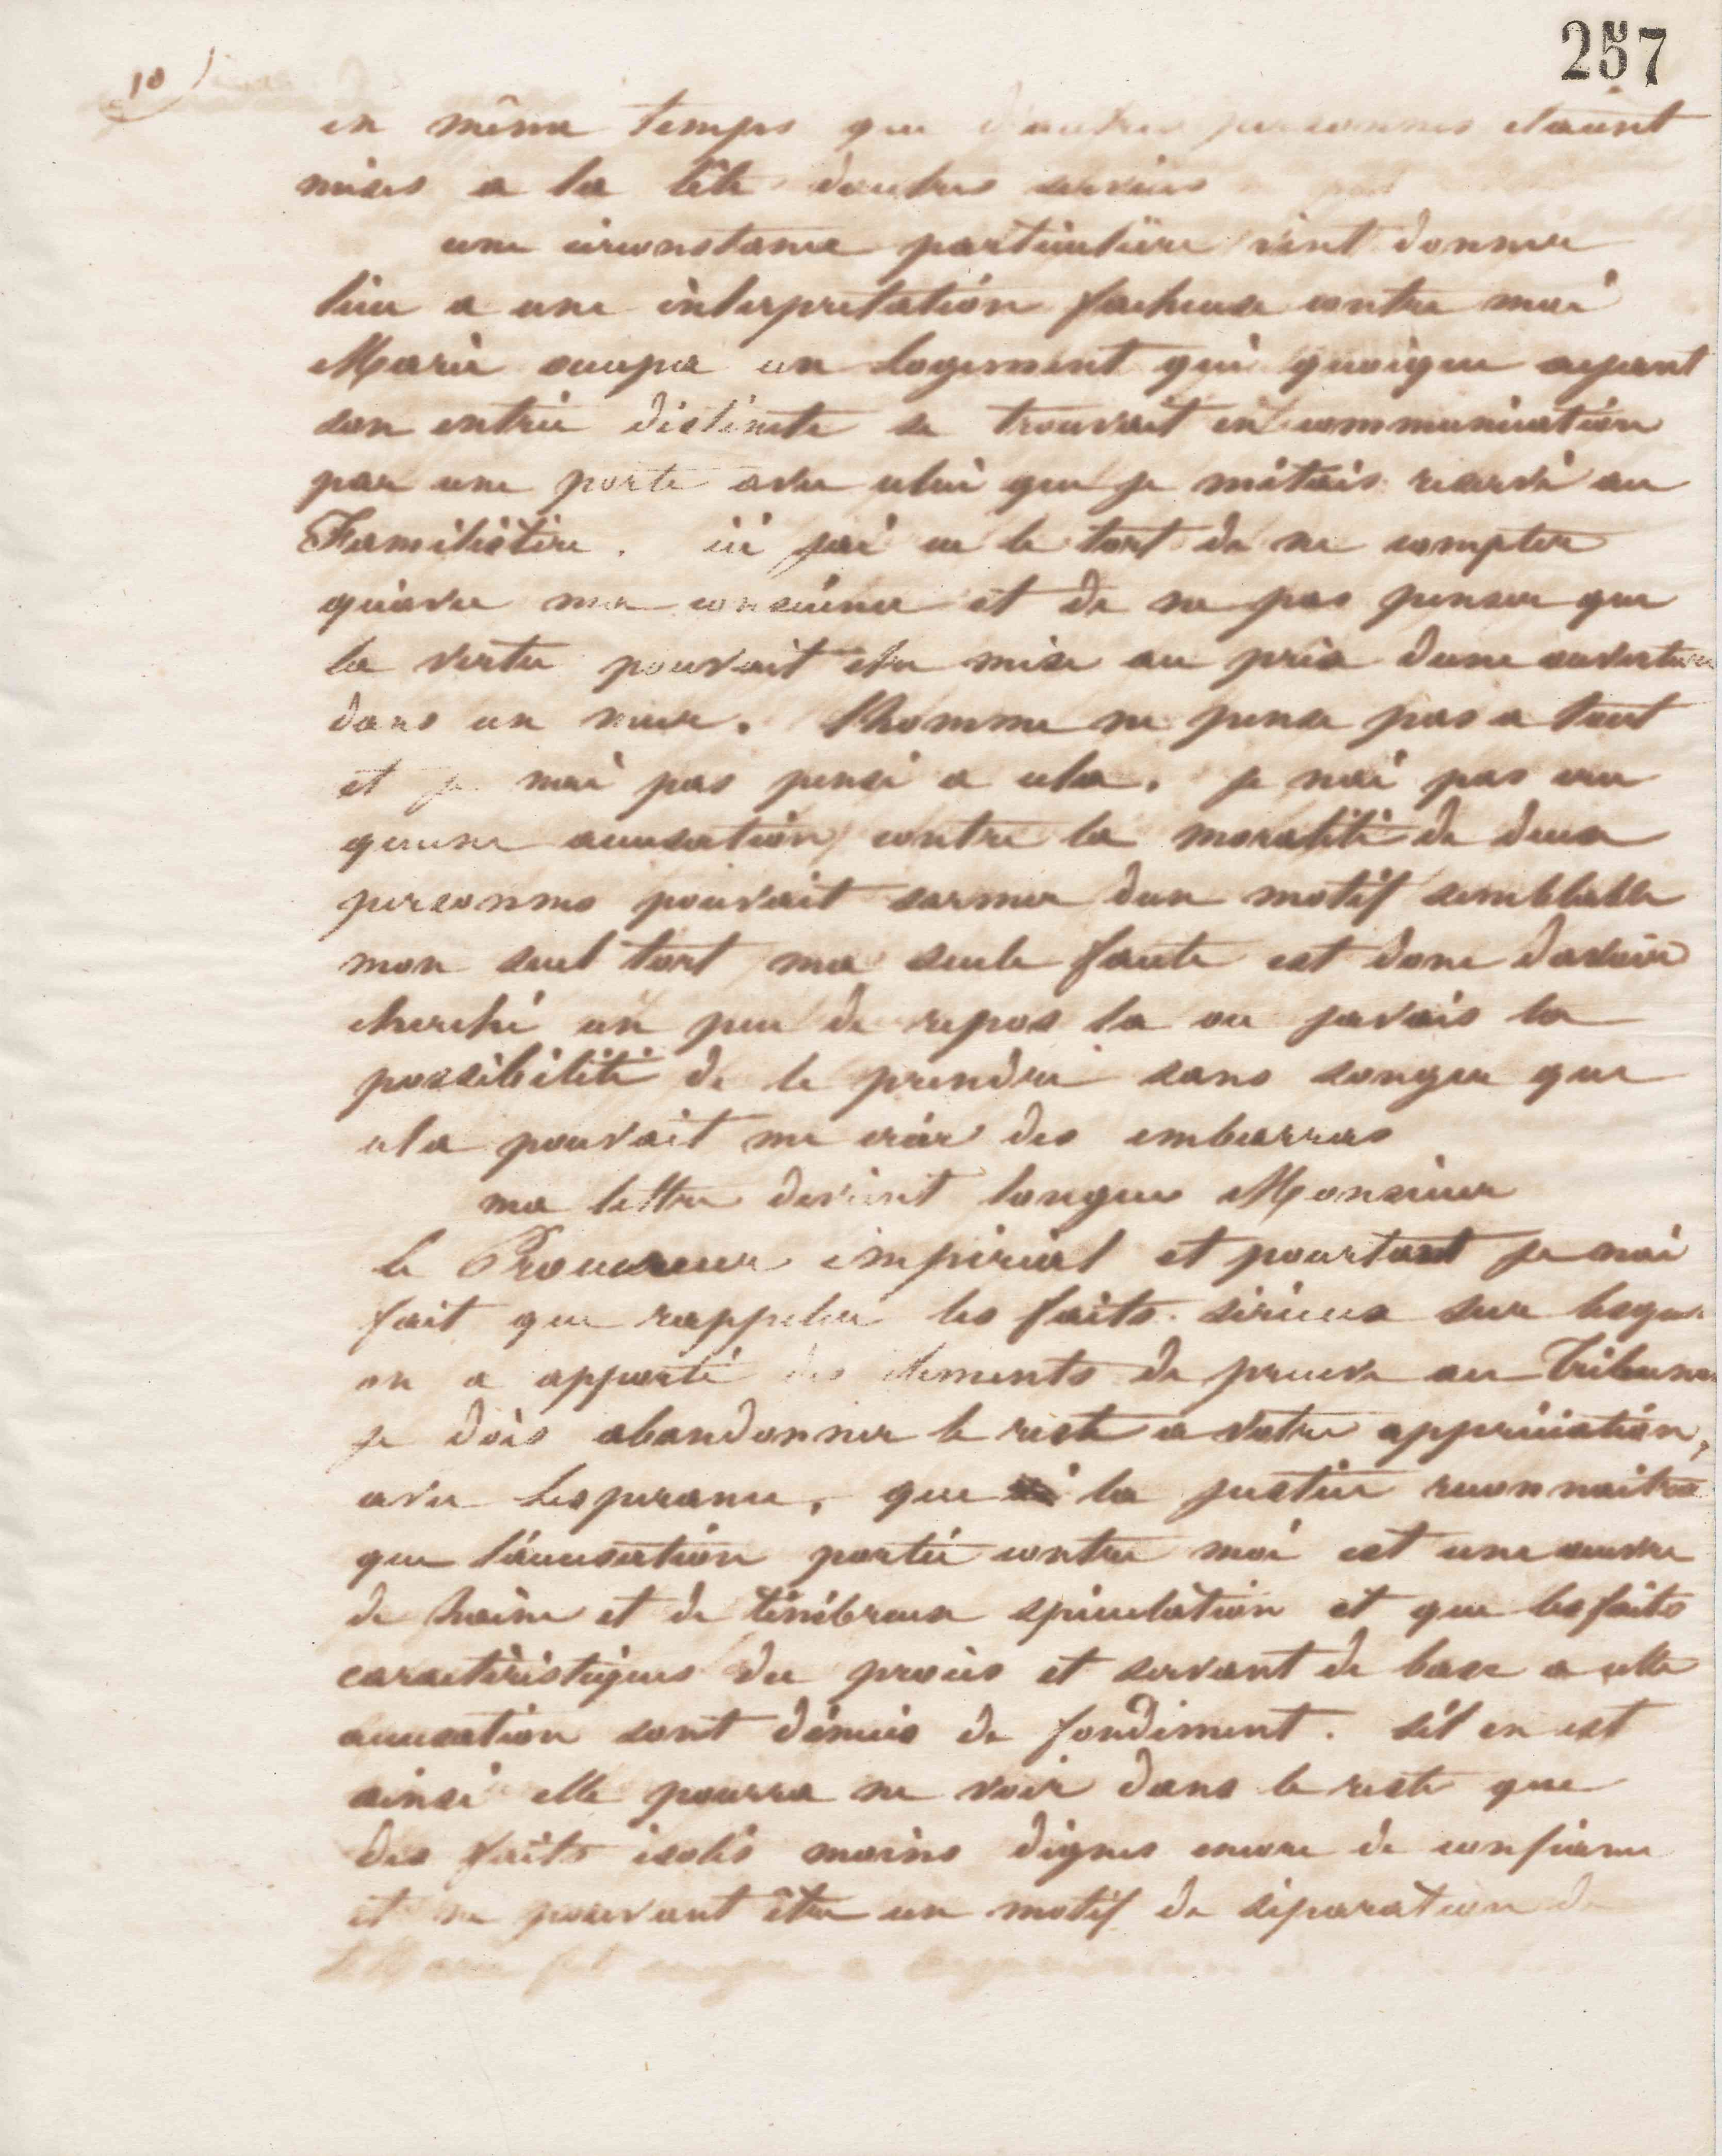 257
10
en même temps que d'autres personnes étaient
mises a la tête dautres services
une circonstance particulière vint donner
lieu a une interprétation facheuse contre moi
Marie occupa un logement qui quoique ayant
son entrée distincte se trouvait en communication
par une porte avec celui que je m'étais reservé au
Familistère. ici jai eu le tort de ne compter
quavec ma conscience et de ne pas penser que
la vertu pouvait etre mise au prix dune ouverture
dans un mur. lhomme ne pense pas a tout
et je nai pas pensé a cela. je nai pas cru
quune accusation contre la moralité de deux
personnes pouvait sarmer dun motif semblable
mon seul tort ma seule faute est donc davoir
cherché un peu de repos la ou javais la
possibilité de le prendre sans songer que
cela pouvait me créer des embarras
ma lettre devient longue Monsieur
le Procureur impérial et pourtant je nai
fait que rappeler les faits sérieux sur lesquels
on a apporté des elements de preuve au Tribunal
je dois abandonner le reste a votre appréciation,
avec lesperance, que la justice reconnaitra
que l'accusation portée contre moi est une œuvre
de haine et de ténébreuse spéculation et que les faits
caractéristiques du procès et servant de base a cette
accusation sont dénués de fondement. s'il en est
ainsi elle pourra ne voir dans le reste que
des faits isolés moins dignes encore de confiance
et ne pouvant être un motif de séparation de